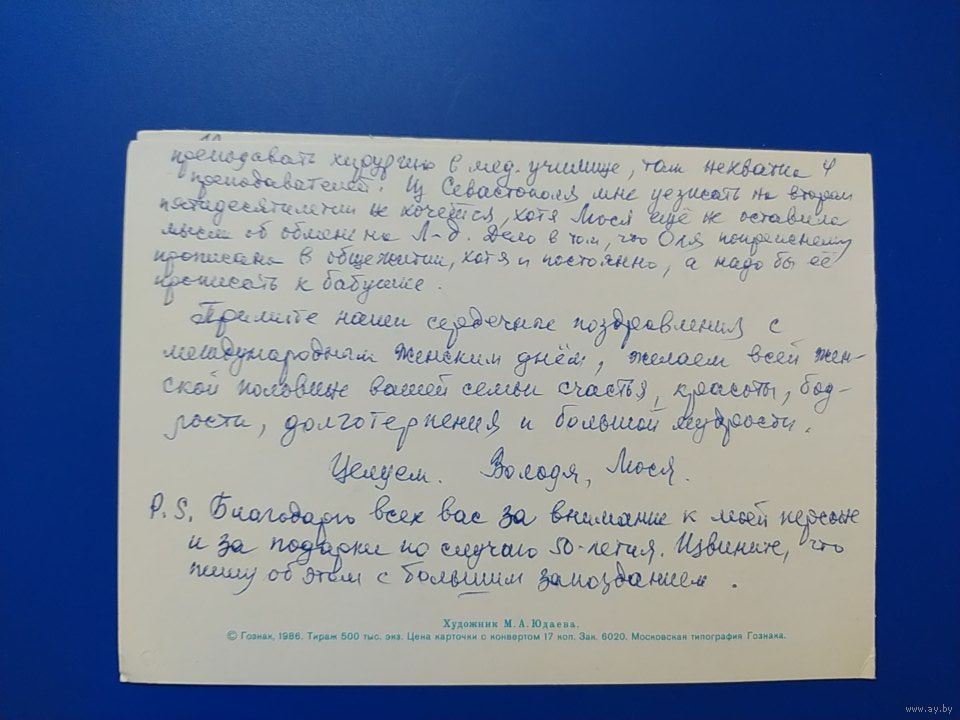 преподавать хирургию в мед. училище, там нехватка 4
преподавателей. Из Севастополя мне уезжать на втором
пятидесятилетии не хочется, хотя Мося ещё не оставила
мысли об обмене на Л-д. Дело в том, что Оля попрежнему
прописана в общежитии, хотя и постоянно, а надо бы её
прописать к бабушке.
Примите наши сердечные поздравления с
международным женским днём, желаем всей жен-
ской половине вашей семьи счастья, красоты, бод-
рости, долготерпения и большой мудрости.
Целуем. Володя, Мося.
P.S. Благодарю всех вас за внимание к моей персоне
и за подарки по случаю 50-летия. Извините, что
пишу об этом с большим запозданием.
Художник М. А. Юдаева.
© Гознак, 1986. Тираж 500 тыс. экз. Цена карточки с конвертом 17 коп. Зак. 6020. Московская типография Гознака.
www.ay.by